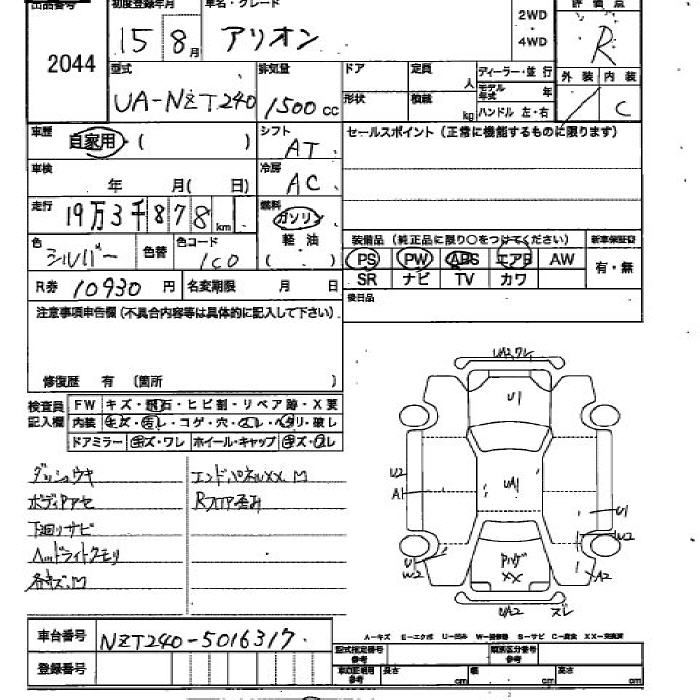 出品番号 初度登録年月 車名・グレード 評価点
2044 15 8月 アリオン 2WD 4WD R
型式 排気量 ドア 定員 人 ディーラー・並行 外装 内装
UA-NZT240 1500cc 形状 積載 kg モデル年式 年 ハンドル 左・右 / C
車歴 自家用 ( ) シフト AT セールスポイント(正常に機能するものに限ります)
車検 年 月( 日) 冷房 AC
走行 19万3千878km 燃料 ガソリン 軽油 ( )
装備品(純正品に限り○をつけてください) 新車保証書
色 シルバー 色替 色コード 1C0
PS PW ABS エアB AW 有・無
SR ナビ TV カワ
R券 10930円 名変期限 月 日 後日品
注意事項申告欄(不具合内容等は具体的に記入して下さい)
修復歴 有 (箇所 )
検査員記入欄 FW キズ・飛石・ヒビ割・リペア跡・X要
内装 キズ・汚レ・コゲ・穴・スレ・ヘタリ・破レ
ドアミラー キズ・ワレ ホイール・キャップ キズ・スレ
ダッシュウキ エンドパネルXX.M
ボディアセ Rフロア歪み
下廻りサビ
ヘッドライトクモリ
各キズ.M
UA2ワレ
U1
U2
A1
UA1
U1
W2
U1
W2
パンダ
XX
A2
UA2 ズレ
A-キズ E-エクボ U-凹み W-補修跡 S-サビ C-腐食 XX-交換済
車台番号 NZT240-5016317
型式指定番号 参考 類別区分番号 参考
登録番号
車庫証明用 参考 長さ cm 幅 cm 高さ cm